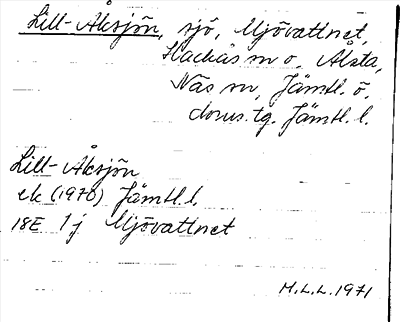 Lill-Åksjön, sjö, Mjövattnet,
Hackås m o. Ålsta,
Näs m, Jämtl. ö.
doms.tg. Jämtl. l.
Lill-Åksjön
ek (1970) Jämtl. l.
18E 1j Mjövattnet
M.L.L. 1971